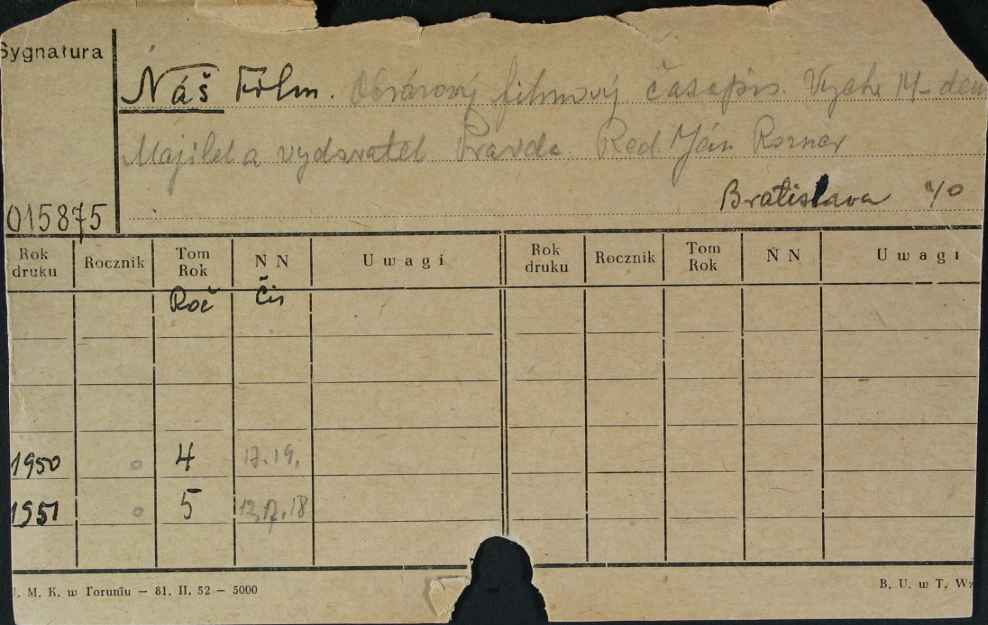 Sygnatura
Náš Film. Obrázový filmový časopis. Vych. 14-den
Majitel a vydavatel Pravda. Red. Ján Rozner
Bratislava 4/0
015875
Rok druku Rocznik Tom Rok N N Uwagi Rok druku Rocznik Tom Rok N N Uwagi
Roč Čis
1950 0 4 17.19.
1951 0 5 12,17,18
U. M. K. w Toruniu — 81. II. 52 — 5000 B. U. w T. Wz